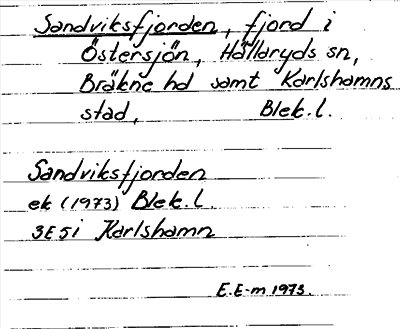 Sandviksfjorden, fjord i
Östersjön, Hällaryds sn,
Bräkne hd samt Karlshamns
stad, Blek.l.
Sandviksfjorden
ek (1973) Blek.l.
3E5i Karlshamn
E.E-m 1973.